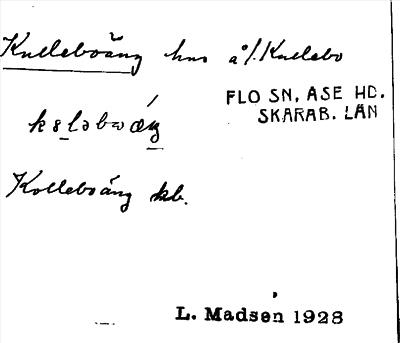 Kulleboäng hus å/. Kullebo
FLO SN, ASE HD.
SKARAB. LÄN
Kolleboäng kb.
L. Madsen 1928